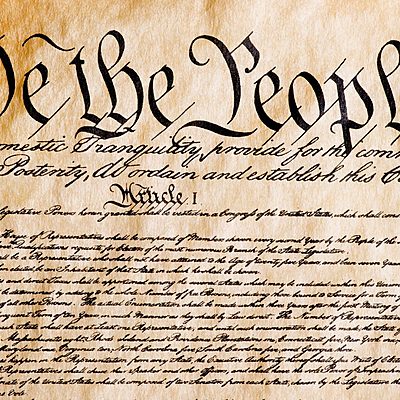 We the People
omestic Tranquility, provide for the com
Posterity, do ordain and establish this C
Article I
egislative Powers herein granted shall be vested in a Congress of the United States, which shall cons
House of Representatives shall be composed of Members chosen every second Year by the People of the
Qualifications requisite for Electors of the most numerous Branch of the State Legislature.
shall be a Representative who shall not have attained to the Age of twenty five Years, and been seven Years
elected, be an Inhabitant of that State in which he shall be chosen.
and direct Taxes shall be apportioned among the several States which may be included within this Union
be determined by adding to the whole Number of free Persons, including those bound to Service for a Term of
of all other Persons. The actual Enumeration shall be made within three Years after the first Meeting of
subsequent Term of ten Years, in such Manner as they shall by Law direct. The Number of Representatives
each State shall have at Least one Representative; and until such enumeration shall be made, the State of
Massachusetts eight, Rhode Island and Providence Plantations one, Connecticut five, New York
Maryland six, Virginia ten, North Carolina five, South Carolina five, and
happen in the Representation from any State, the Executive Authority thereof shall issue Writs of Election
of Representatives shall chuse their Speaker and other Officers; and shall have the sole Power of Impeachment
Senate of the United States shall be composed of two Senators from each State, chosen by the Legislature
one Vote.